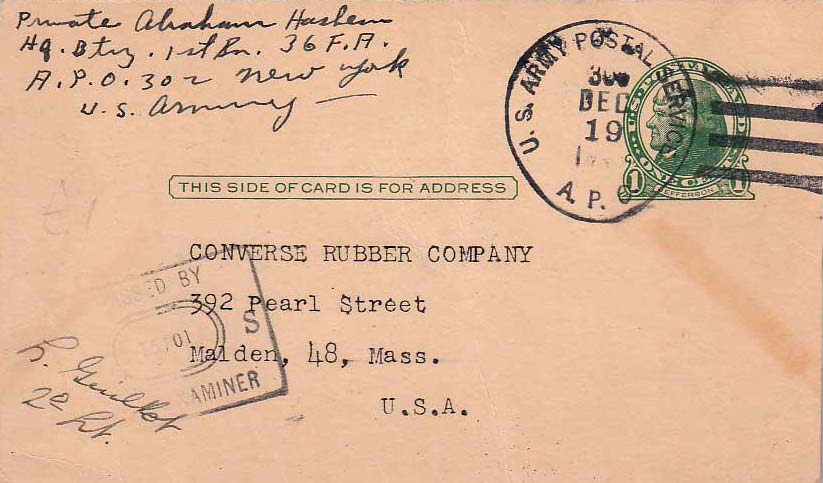 Private Abraham Hashem
Hq. Btry. 1st Bn. 36 F.A.
A.P.O. 302 New York
U.S. Army
U.S. ARMY POSTAL SERVICE
DEC
19
A.P.O
U.S. POSTAGE
1 ONE CENT 1
JEFFERSON
THIS SIDE OF CARD IS FOR ADDRESS
CONVERSE RUBBER COMPANY
392 Pearl Street
Malden, 48, Mass.
U.S.A.
SSED BY
S
01
AMINER
2d Lt.